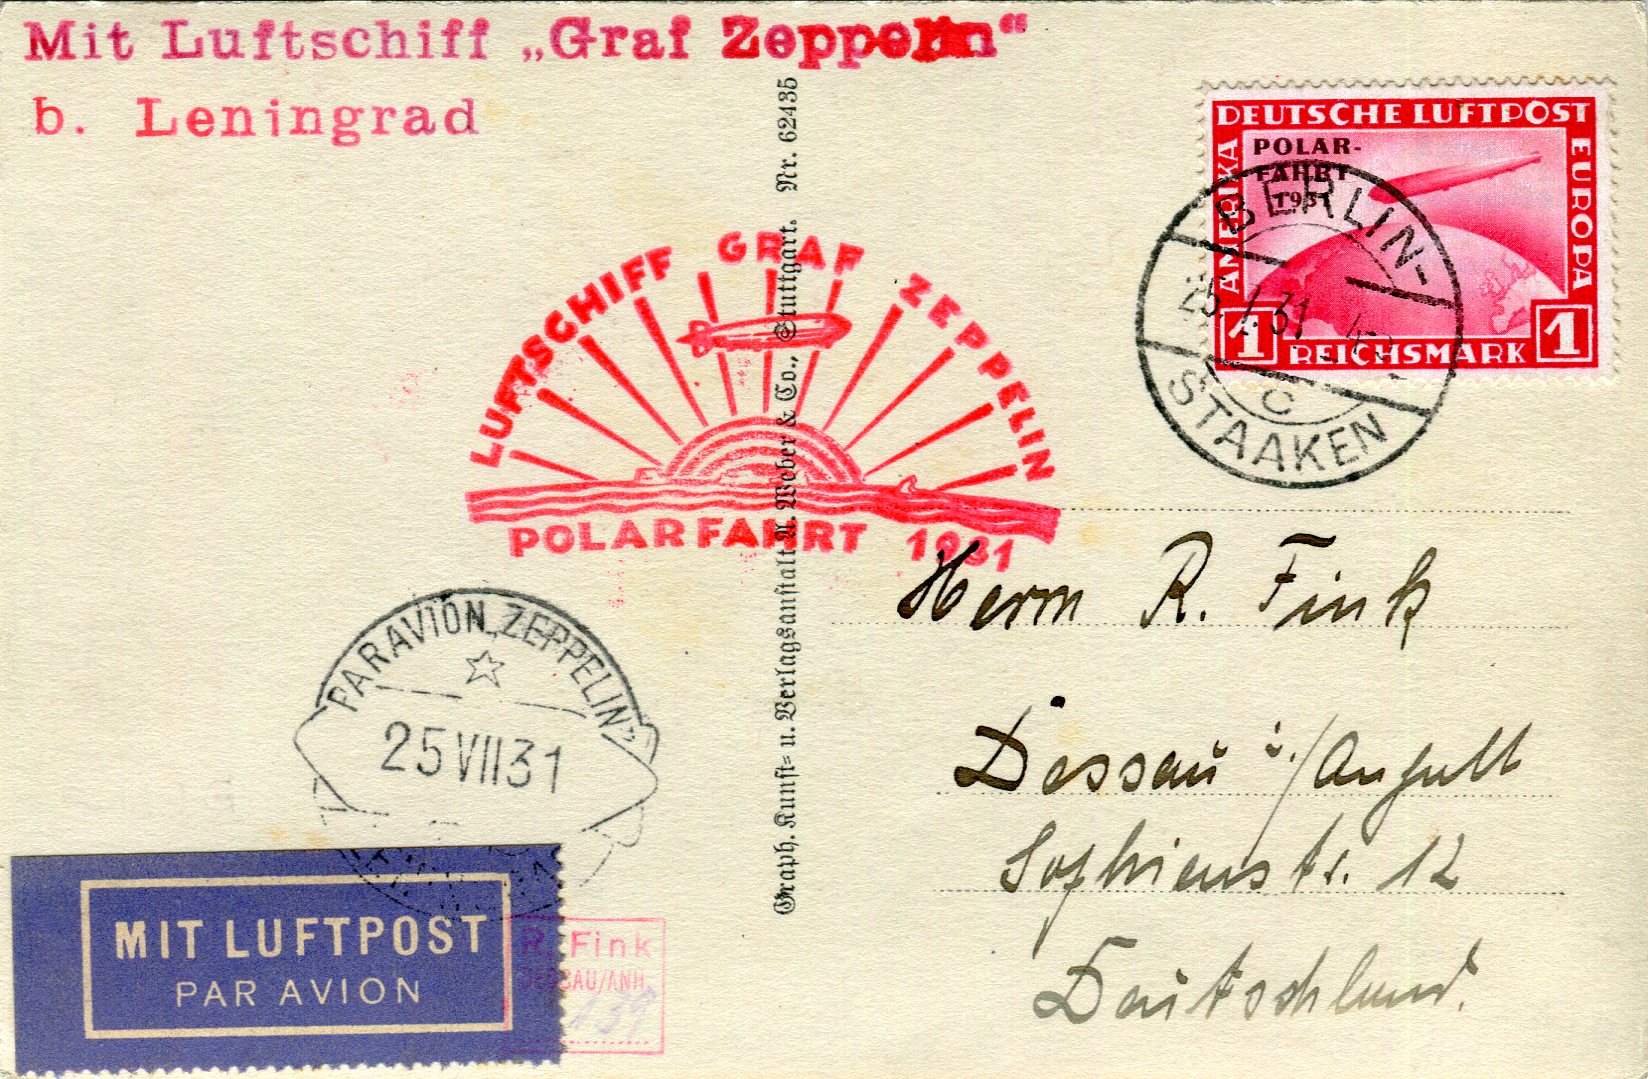 Mit Luftschiff „Graf Zeppelin“
b. Leningrad
DEUTSCHE LUFTPOST
AMERIKA
EUROPA
POLAR-
FAHRT
1931
1 REICHSMARK 1
BERLIN-
25. 7. 31
C
STAAKEN
LUFTSCHIFF GRAF ZEPPELIN
POLARFAHRT 1931
Graph. Kunst- u. Verlagsanstalt A. Weber & Co., Stuttgart. Nr. 62435
Herrn R. Fink
Dessau i./Anhalt
Sophienstr. 12
Deutschland.
PAR AVION „ZEPPELIN”
25 VII 31
MIT LUFTPOST
PAR AVION
R. Fink
DESSAU/ANH.
139